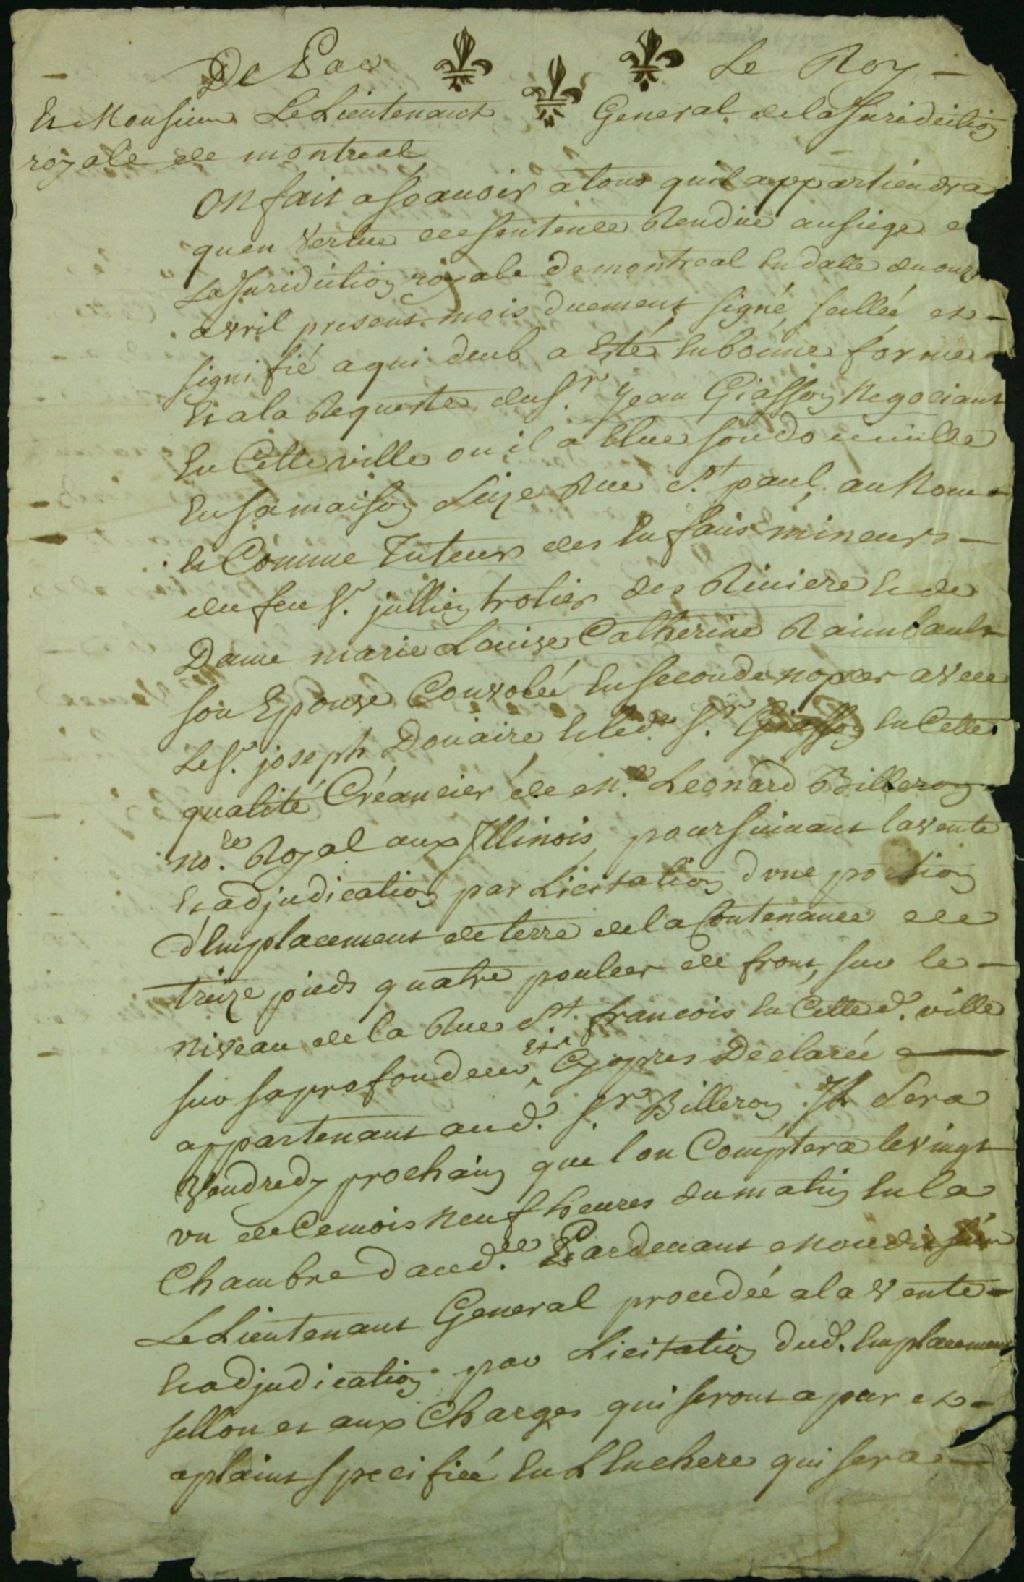 De Par Le Roy
Et Monsieur Le Lieutenant General de la Juridiction
royalle de montreal
On fait ascavoir a tous quil appartiendra
quen vertue de sentence Rendue au siege de
La Juridiction royale de montreal En datte du onze
avril present mois duement signé, sellée et
signifié a qui deub a Esté En bonne forme
Et a la Requeste du Sr. Jean Giasson Negociant
En Cette ville ou il a Elue son domicille
En sa maison size Rue St. paul, au Nom
Et Comme Tuteur des Enfans mineurs
du feu Sr. jullien trotier des Riviere Et de
Dame marie Louise Catherine Raimbault
son Epouse Convolée En seconde nopces avec
Le Sr. joseph Douaire Et led. Sr. Giasson En Cette
qualité Créancier de Me. Leonard Billeron
nore. Royal aux Illinois, poursuivant la vente
Et adjudication par Licitation dune portion
d'Emplacement de terre de la Contenance de
treize pieds quatre poulces de front, sur le
niveau de la Rue St. francois En Cette d. ville
sur sa profondeur Cy apres Declarée
appartenant aud. Sr. Billeron Il Sera
Vendredy prochain que l'on Comptera le vingt
un de Ce mois Neuf heures du matin En la
Chambre daud.ce Pardevant mondit sieur
Le Lieutenant General procedée a la vente
Et adjudication par Licitation dud. Emplacement
sellon et aux Charges qui seront a pur et
a plaint specifiée En L'Enchere qui sera